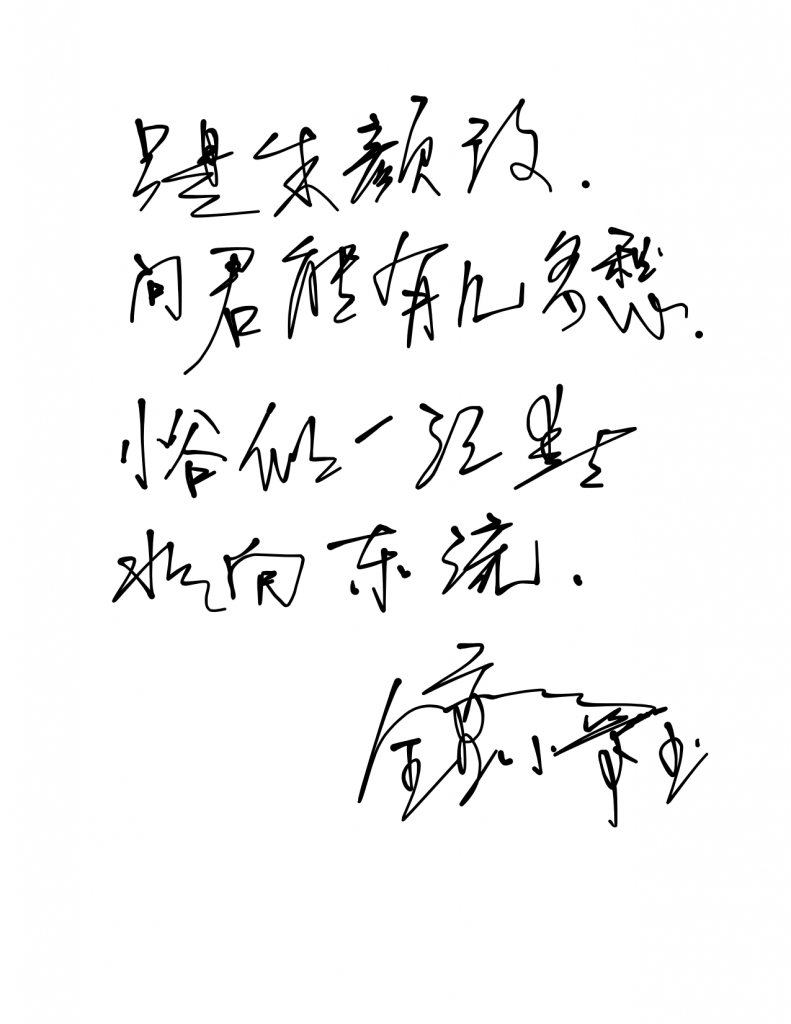 只是朱颜改.
问君能有几多愁.
恰似一江春
水向东流.